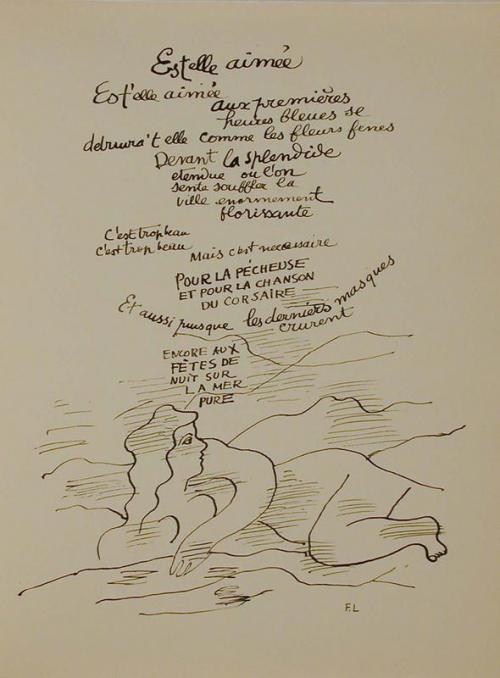 Estelle aimée
Est'elle aimée
aux premières
heures bleues se
detruira't elle comme les fleurs fenes
Devant la splendide
etendue où l'on
sente souffler la
ville enormement
florissante
C'est trop beau
c'est trop beau
Mais c'est necessaire
POUR LA PÉCHEUSE
ET POUR LA CHANSON
DU CORSAIRE
Et aussi puisque les derniers masques
crurent
ENCORE AUX
FÊTES DE
NUIT SUR
LA MER
PURE
F.L